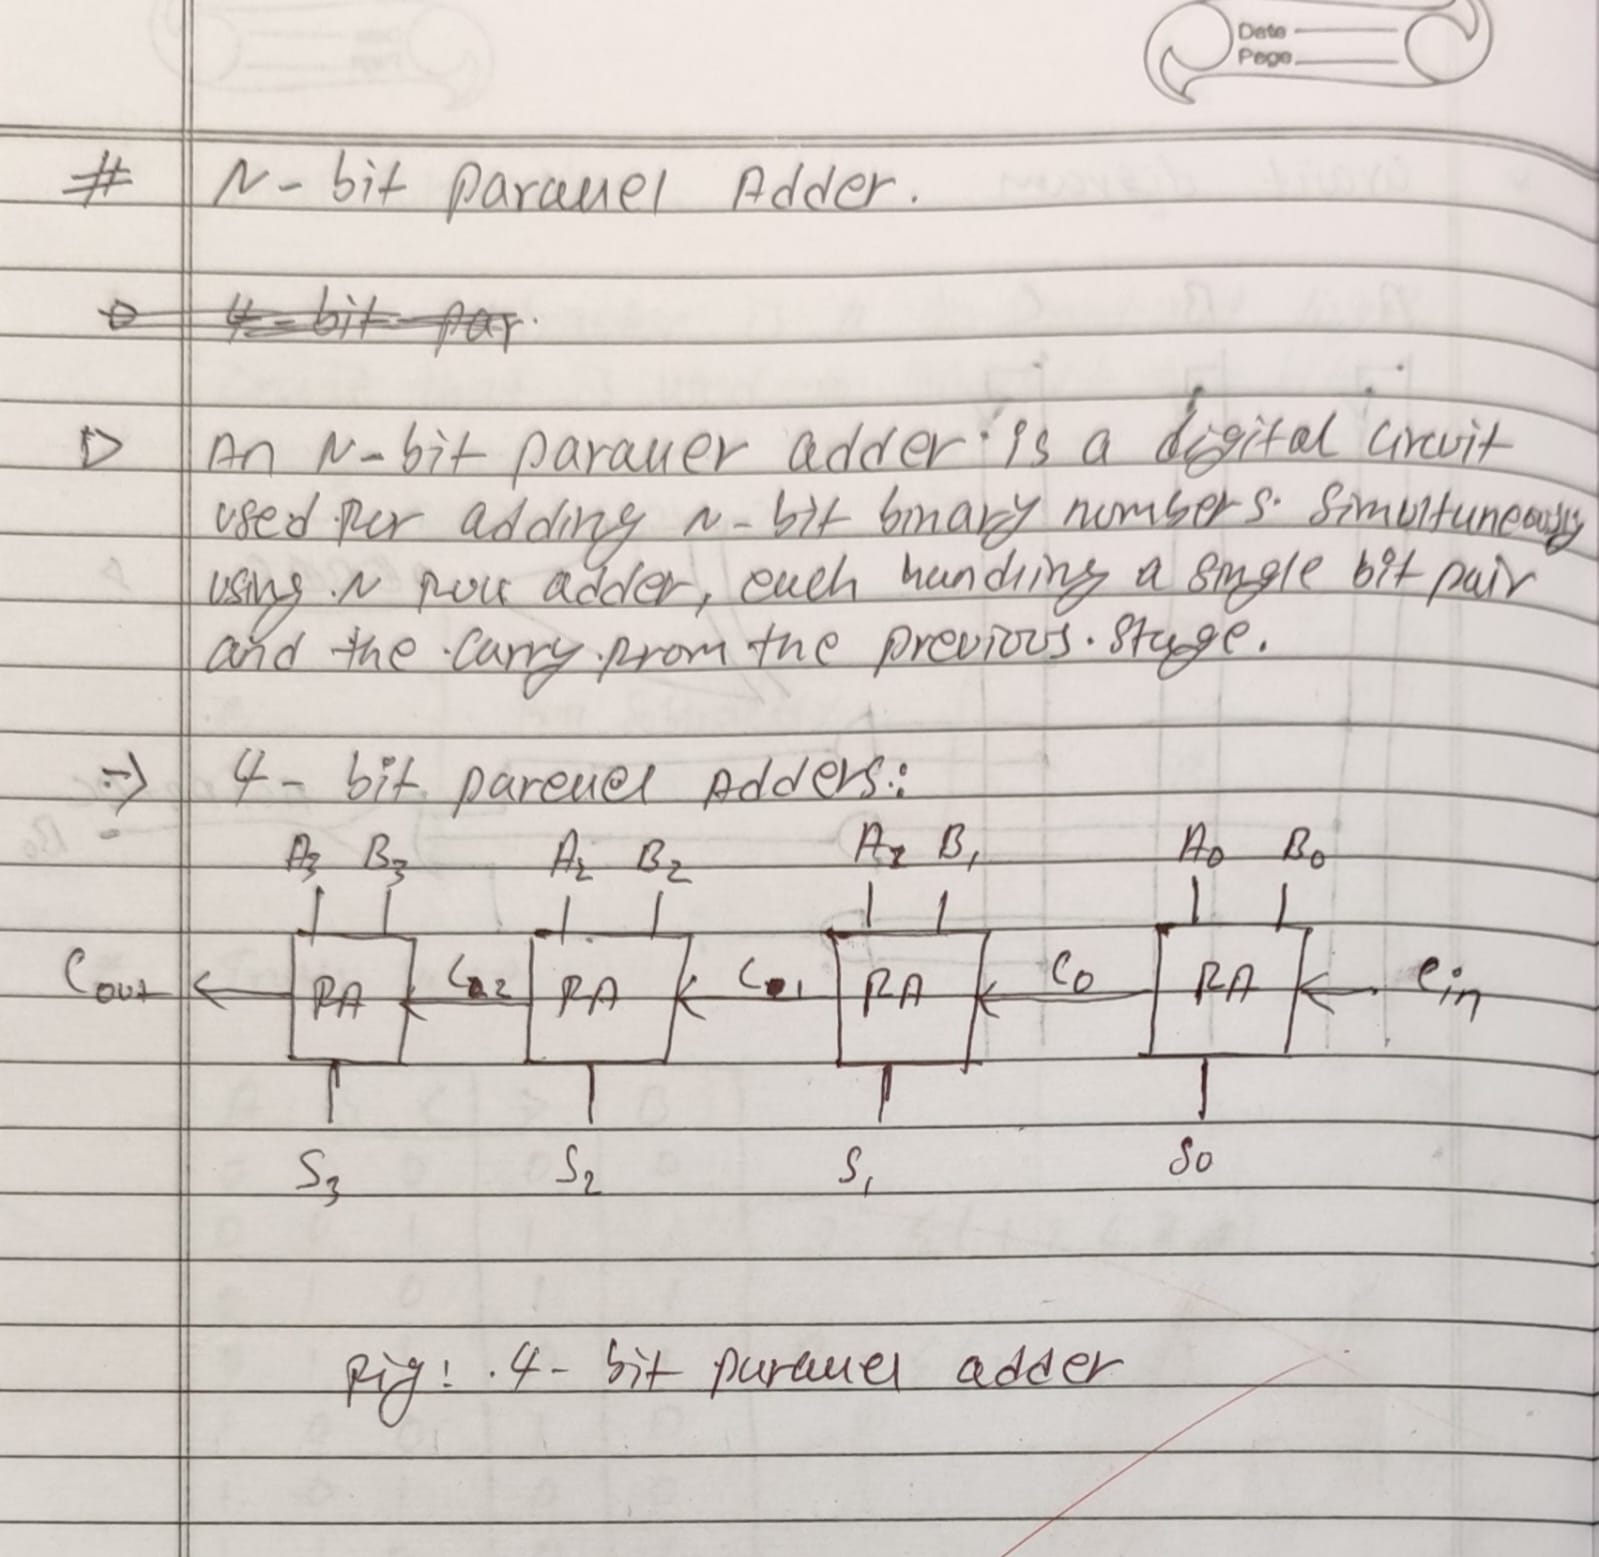 Date
Page
# N-bit parallel Adder.
4-bit par.
An N-bit parallel adder is a digital circuit
used for adding N-bit binary numbers. Simultuneously
using N full adder, each handling a single bit pair
and the carry from the previous stage.
=> 4- bit parellel Adders:
A3 B3 A2 B2 A1 B1 A0 B0
Cout FA C2 FA C1 FA C0 FA Cin
S3 S2 S1 S0
Fig: 4- bit parallel adder